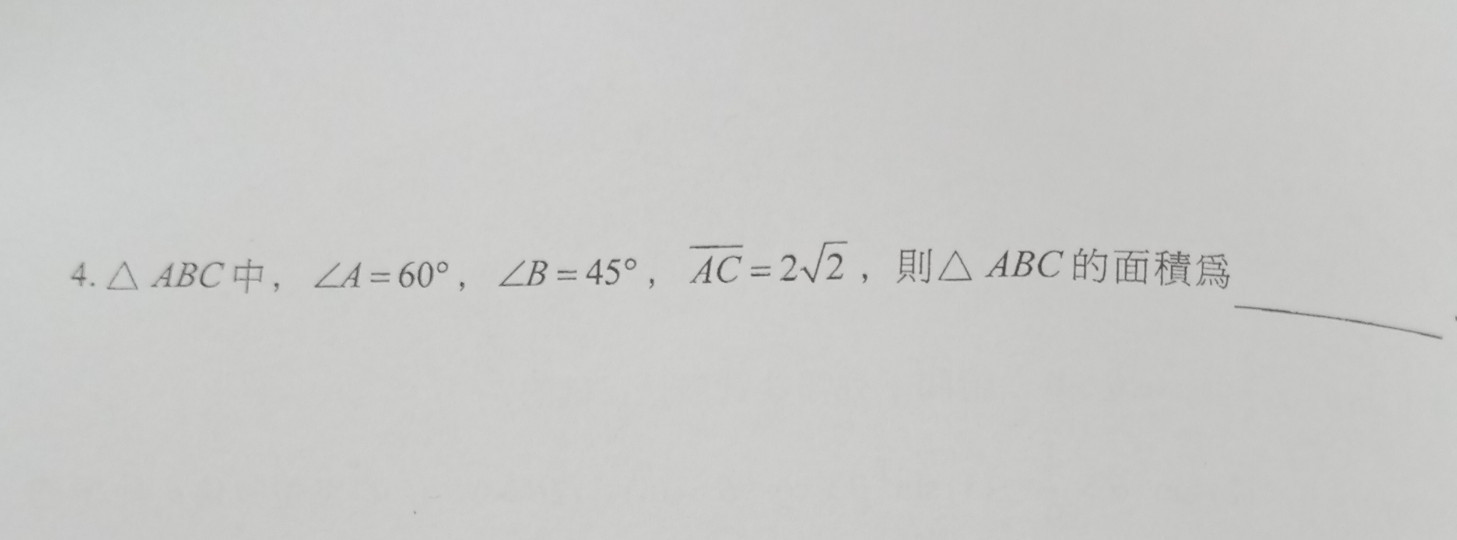 4. △ ABC 中，∠A = 60°，∠B = 45°，\overline{AC} = 2√2，則△ ABC 的面積為______